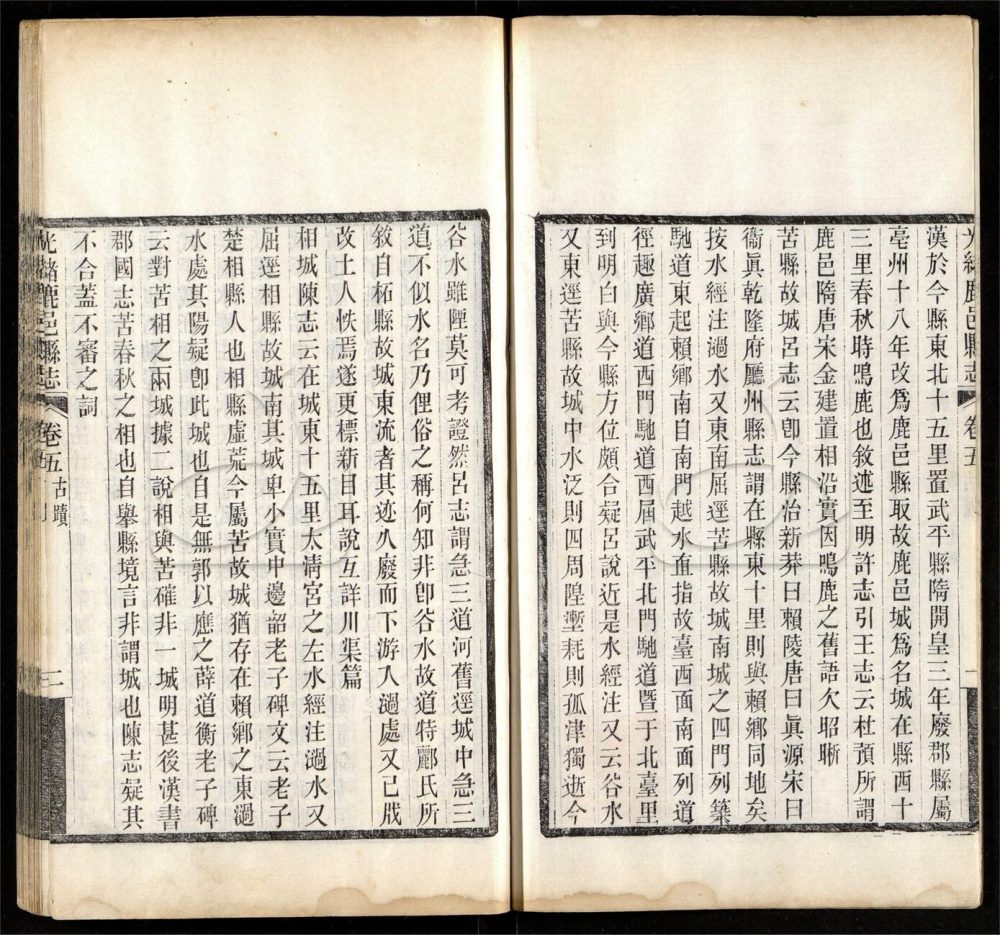 光緒鹿邑縣志 卷五
漢於今縣東北十五里置武平縣隋開皇三年廢郡縣屬
亳州十八年改爲鹿邑縣取故鹿邑城爲名城在縣西十
三里春秋時鳴鹿也敘述至明許志引王志云杜預所謂
鹿邑隋唐宋金建置相沿實因鳴鹿之舊語欠昭晣
苦縣故城呂志云卽今縣治新莽曰賴陵唐曰眞源宋曰
衞眞乾隆府廳州縣志謂在縣東十里則與賴鄉同地矣
按水經注濄水又東南屈逕苦縣故城南城之四門列築
馳道東起賴鄉南自南門越水直指故臺西面南面列道
徑趣廣鄉道西門馳道西屆武平北門馳道暨于北臺里
到明白與今縣方位頗合疑呂說近是水經注又云谷水
又東逕苦縣故城中水泛則四周隍壍耗則孤津獨逝今
谷水雖陻莫可考證然呂志謂急三道河舊逕城中急三
道不似水名乃俚俗之稱何知非卽谷水故道特酈氏所
敘自柘縣故城東流者其迹久廢而下游入濄處又已戕
改土人怢焉遂更標新目耳說互詳川渠篇
相城陳志云在城東十五里太清宮之左水經注濄水又
屈逕相縣故城南其城卑小實中邊韶老子碑文云老子
楚相縣人也相縣虛荒今屬苦故城猶存在賴鄉之東濄
水處其陽疑卽此城也自是無郭以應之薛道衡老子碑
云對苦相之兩城據二說相與苦確非一城明甚後漢書
郡國志苦春秋之相也自舉縣境言非謂城也陳志疑其
不合蓋不審之詞
光緒鹿邑縣志 卷五 古蹟 二